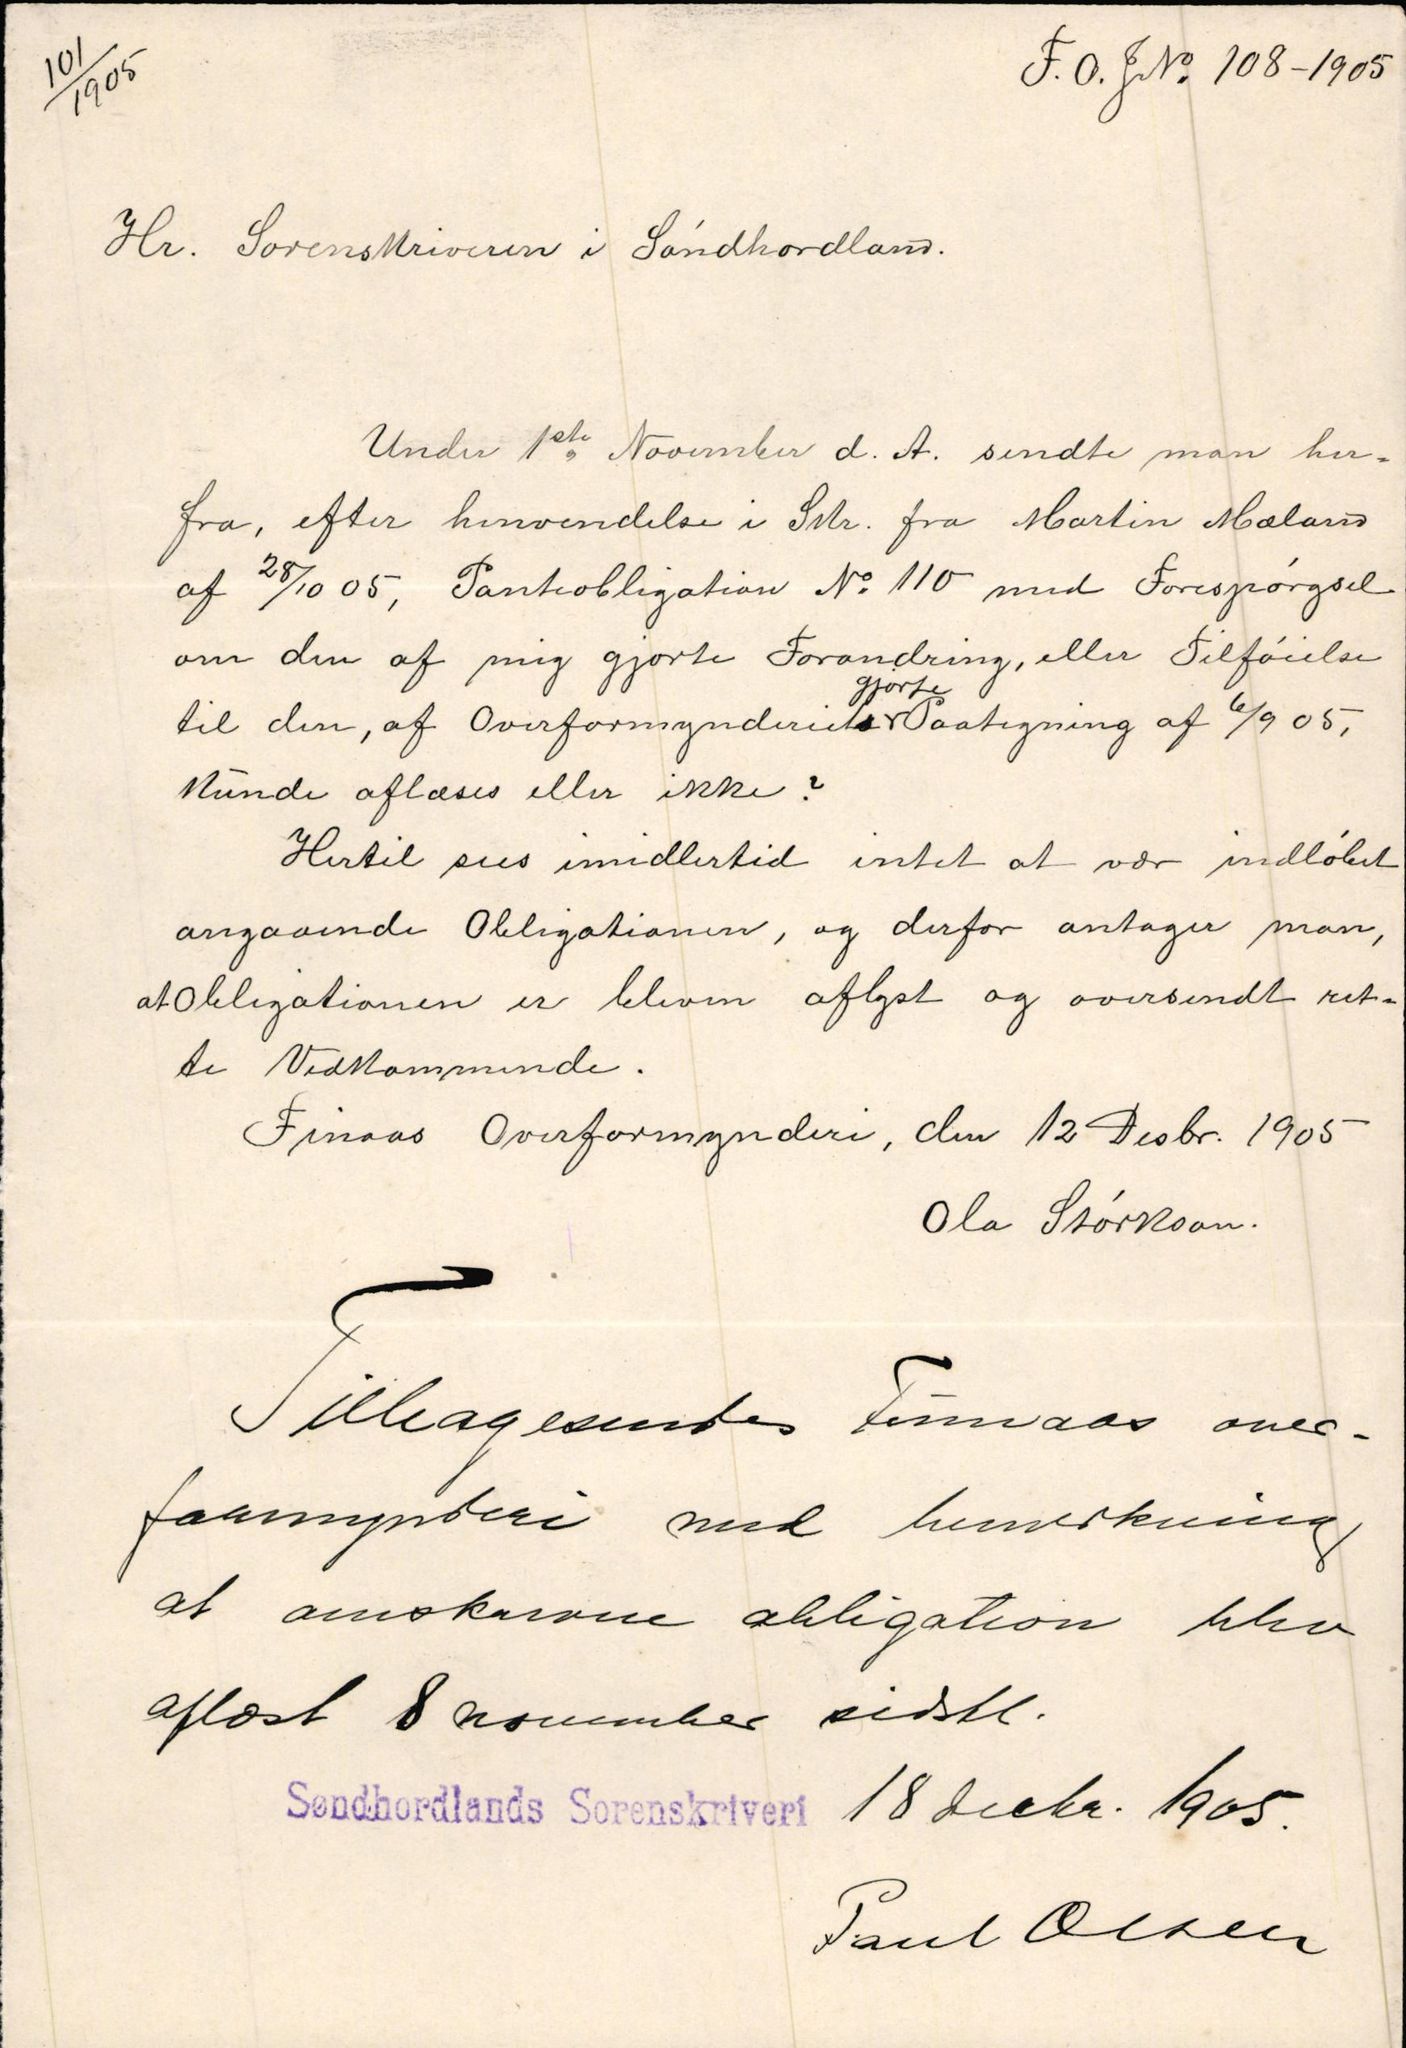 101/1905
F. O. J No. 108-1905
Hr. Sorenskriveren i Sóndhordland.
Under 1ste November d. A. sendte man her-
fra, efter henvendelse i Skr. fra Martin Mæland
af 28/10 05, Panteobligation No. 110 med Forespórgsel
om den af mig gjorte Forandring, eller Tilfóielse
gjorte
til den, af Overformynderiet Paategning af 6/9 05,
kunde aflæses eller ikke?
Hertil sees imidlertid intet at vær indlóbet
angaaende Obligationen, og derfor antager man,
at Obligationen er bleven aflyst og oversendt ret-
te Vedkommende.
Finaas Overformynderi, den 12 Desbr. 1905
Ola Stórkson.
Tilbagesendes Finnaas over-
formynderi med bemerkning,
at omskrevne obligation blev
aflæst 8 november sidstl.
Søndhordlands Sorenskriveri 18 decbr. 1905.
Paul Olsen